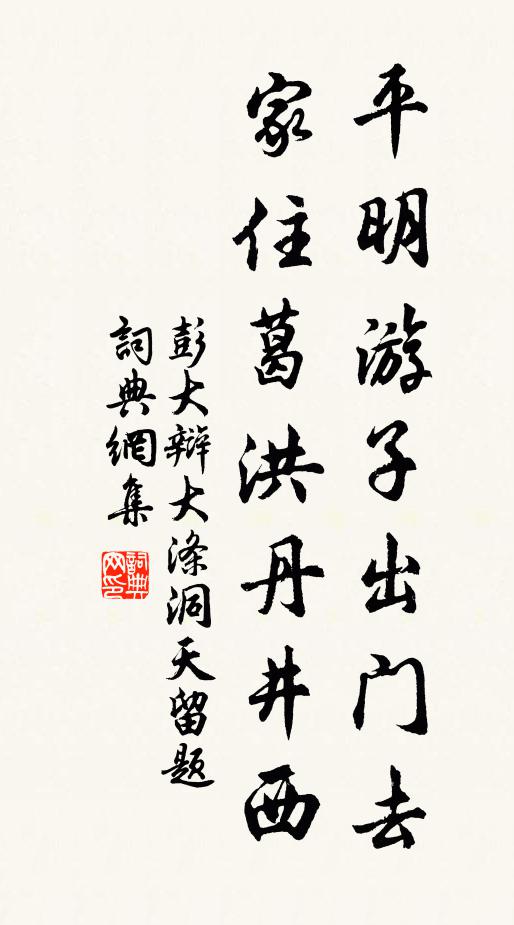 平明游子出門去
家住葛洪丹井西
彭大辯大滌洞天留題
詞典網集
詞典網印